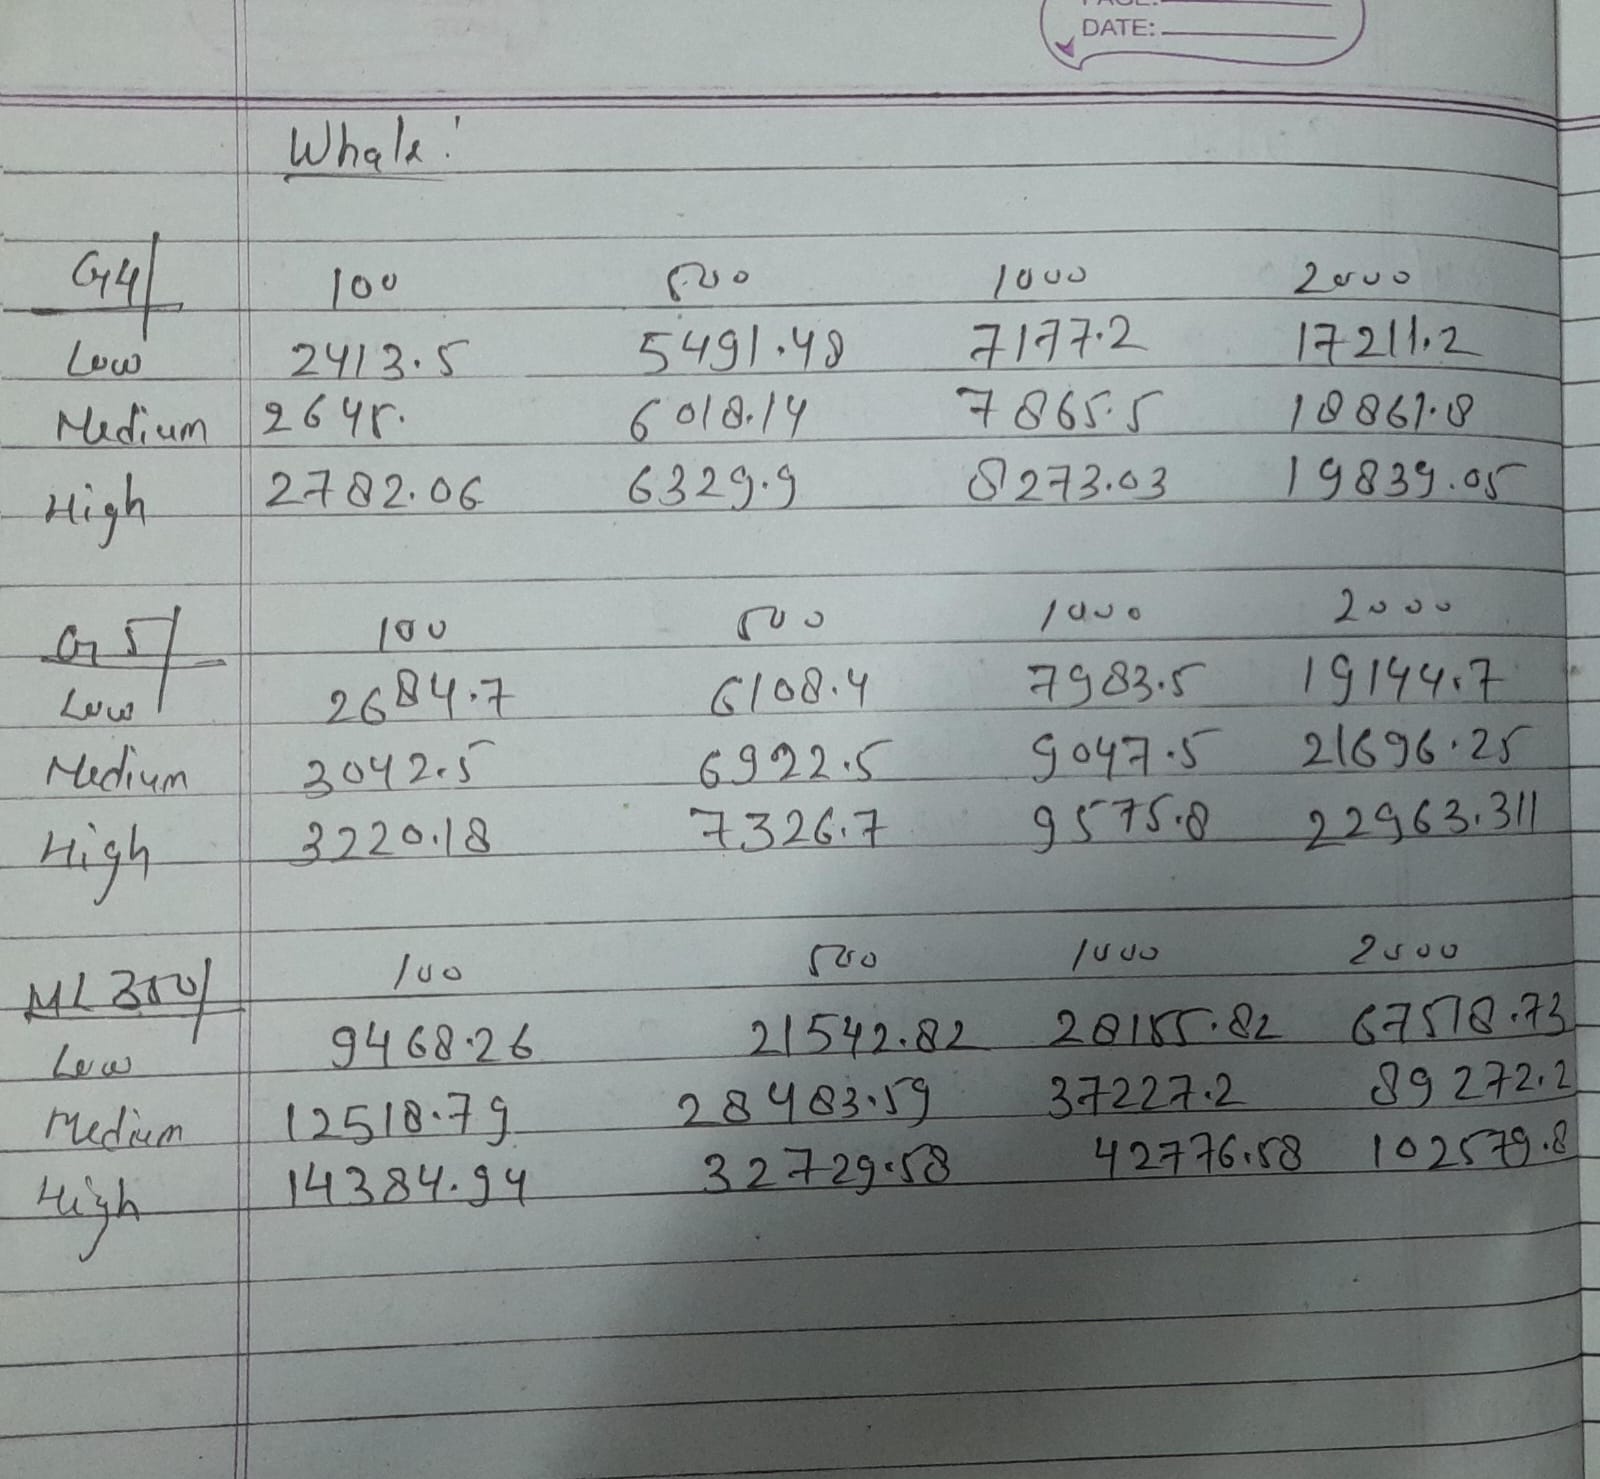 DATE:
Whale:
G4 100 500 1000 2000
Low 2413.5 5491.48 7177.2 17211.2
Medium 2645. 6018.14 7865.5 18861.8
High 2782.06 6329.9 8273.03 19839.05
G5 100 500 1000 2000
Low 2684.7 6108.4 7983.5 19144.7
Medium 3042.5 6922.5 9047.5 21696.25
High 3220.18 7326.7 9575.8 22963.311
ML350 100 500 1000 2000
Low 9468.26 21542.82 28155.82 67518.73
Medium 12518.79 28483.59 37227.2 89272.2
High 14384.94 32729.58 42776.58 102579.8